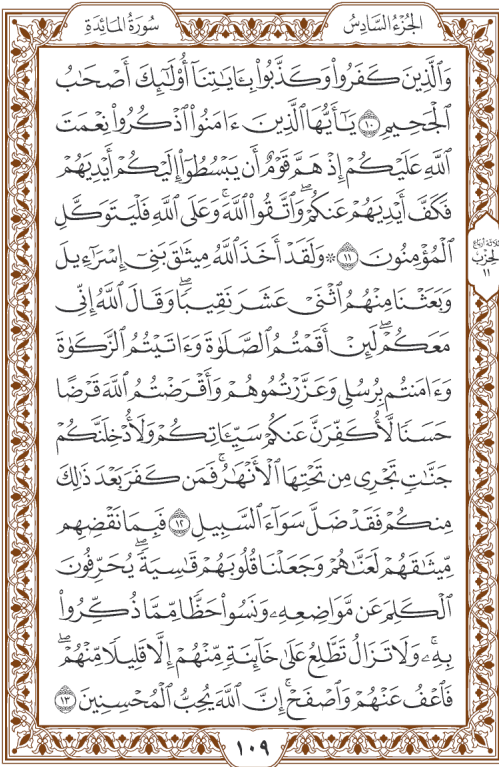 الجُزْءُ السَّادِسُ
سُورَةُ المَائدَةِ
وَالَّذِينَ كَفَرُواْ وَكَذَّبُواْ بِـَٔايَٰتِنَآ أُوْلَٰٓئِكَ أَصْحَٰبُ
ٱلْجَحِيمِ ١٠ يَٰٓأَيُّهَا ٱلَّذِينَ ءَامَنُواْ ٱذْكُرُواْ نِعْمَتَ
ٱللَّهِ عَلَيْكُمْ إِذْ هَمَّ قَوْمٌ أَن يَبْسُطُوٓاْ إِلَيْكُمْ أَيْدِيَهُمْ
فَكَفَّ أَيْدِيَهُمْ عَنكُمْۖ وَٱتَّقُواْ ٱللَّهَۚ وَعَلَى ٱللَّهِ فَلْيَتَوَكَّلِ
ٱلْمُؤْمِنُونَ ١١ ۞ وَلَقَدْ أَخَذَ ٱللَّهُ مِيثَٰقَ بَنِيٓ إِسْرَٰٓءِيلَ
وَبَعَثْنَا مِنْهُمُ ٱثْنَيْ عَشَرَ نَقِيبًاۖ وَقَالَ ٱللَّهُ إِنِّي
مَعَكُمْۖ لَئِنْ أَقَمْتُمُ ٱلصَّلَوٰةَ وَءَاتَيْتُمُ ٱلزَّكَوٰةَ
وَءَامَنتُم بِرُسُلِي وَعَزَّرْتُمُوهُمْ وَأَقْرَضْتُمُ ٱللَّهَ قَرْضًا
حَسَنًا لَّأُكَفِّرَنَّ عَنكُمْ سَيِّـَٔاتِكُمْ وَلَأُدْخِلَنَّكُمْ
جَنَّٰتٍ تَجْرِي مِن تَحْتِهَا ٱلْأَنْهَٰرُۚ فَمَن كَفَرَ بَعْدَ ذَٰلِكَ
مِنكُمْ فَقَدْ ضَلَّ سَوَآءَ ٱلسَّبِيلِ ١٢ فَبِمَا نَقْضِهِم
مِّيثَٰقَهُمْ لَعَنَّٰهُمْ وَجَعَلْنَا قُلُوبَهُمْ قَٰسِيَةًۖ يُحَرِّفُونَ
ٱلْكَلِمَ عَن مَّوَاضِعِهِۦ وَنَسُواْ حَظًّا مِّمَّا ذُكِّرُواْ
بِهِۦۚ وَلَا تَزَالُ تَطَّلِعُ عَلَىٰ خَآئِنَةٍ مِّنْهُمْ إِلَّا قَلِيلًا مِّنْهُمْۖ
فَٱعْفُ عَنْهُمْ وَٱصْفَحْۚ إِنَّ ٱللَّهَ يُحِبُّ ٱلْمُحْسِنِينَ ١٣
ثلاثة أرباع
الحزب
١١
١٠٩